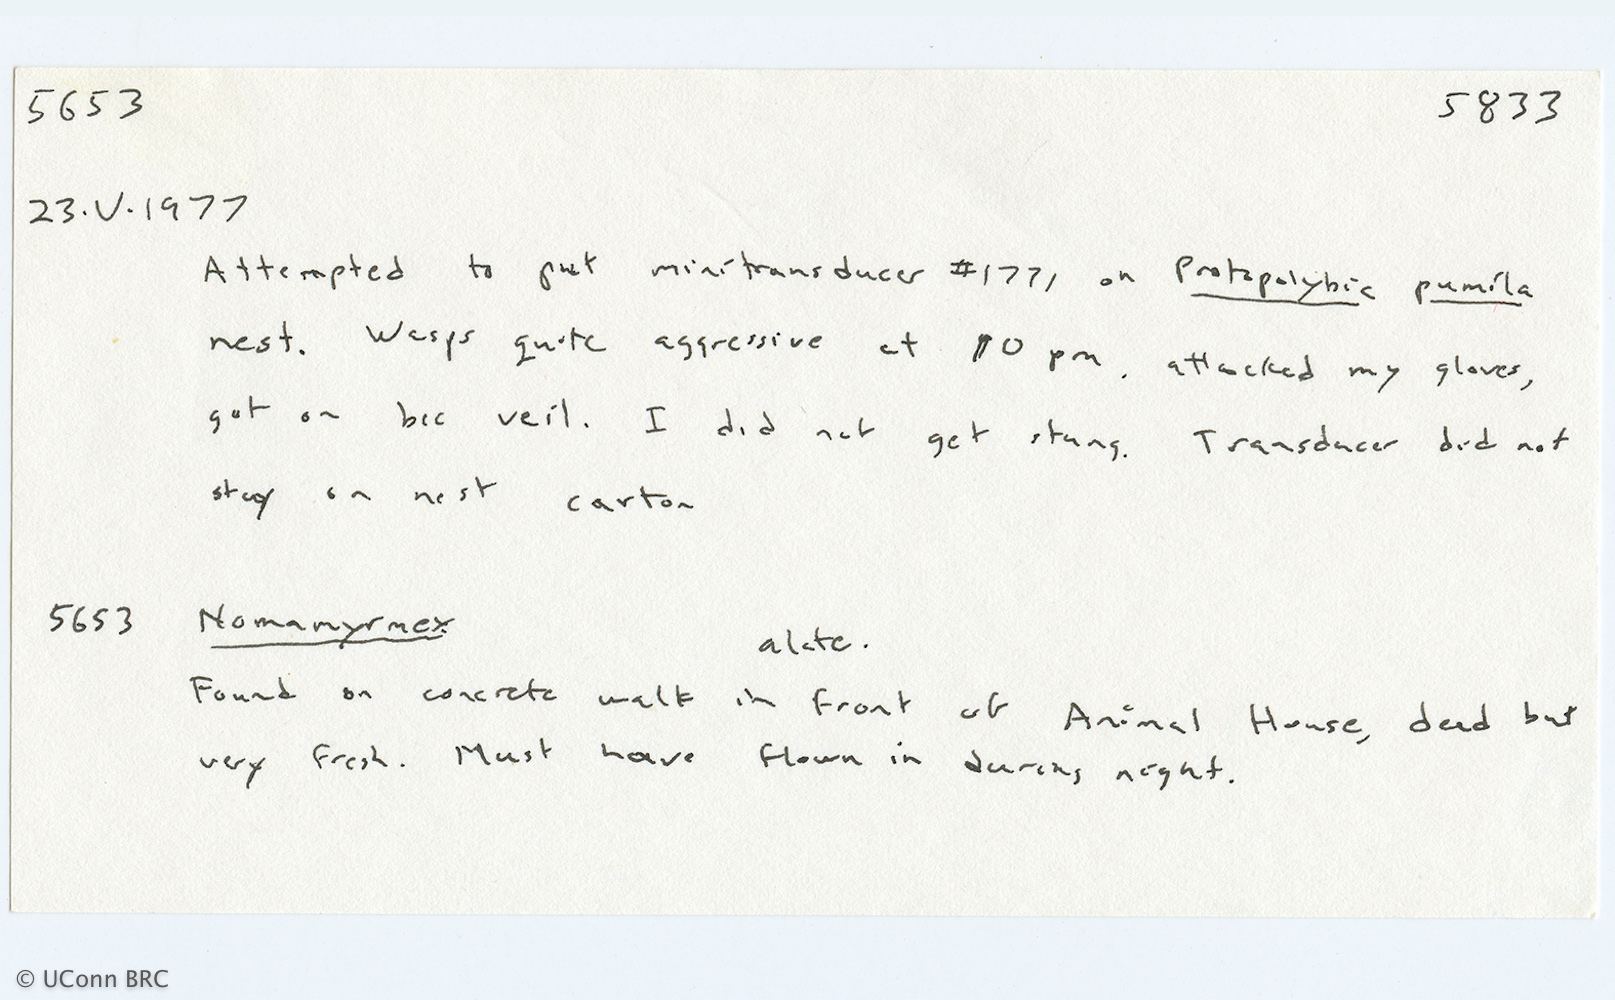 5653 5833
23.V.1977
Attempted to put minitransducer #1771 on Protopolybia pumila
nest. Wasps quite aggressive at 10 pm, attacked my gloves,
got on bee veil. I did not get stung. Transducer did not
stay on nest carton
5653 Nomamyrmex alate.
Found on concrete walk in front of Animal House, dead but
very fresh. Must have flown in during night.
© UConn BRC